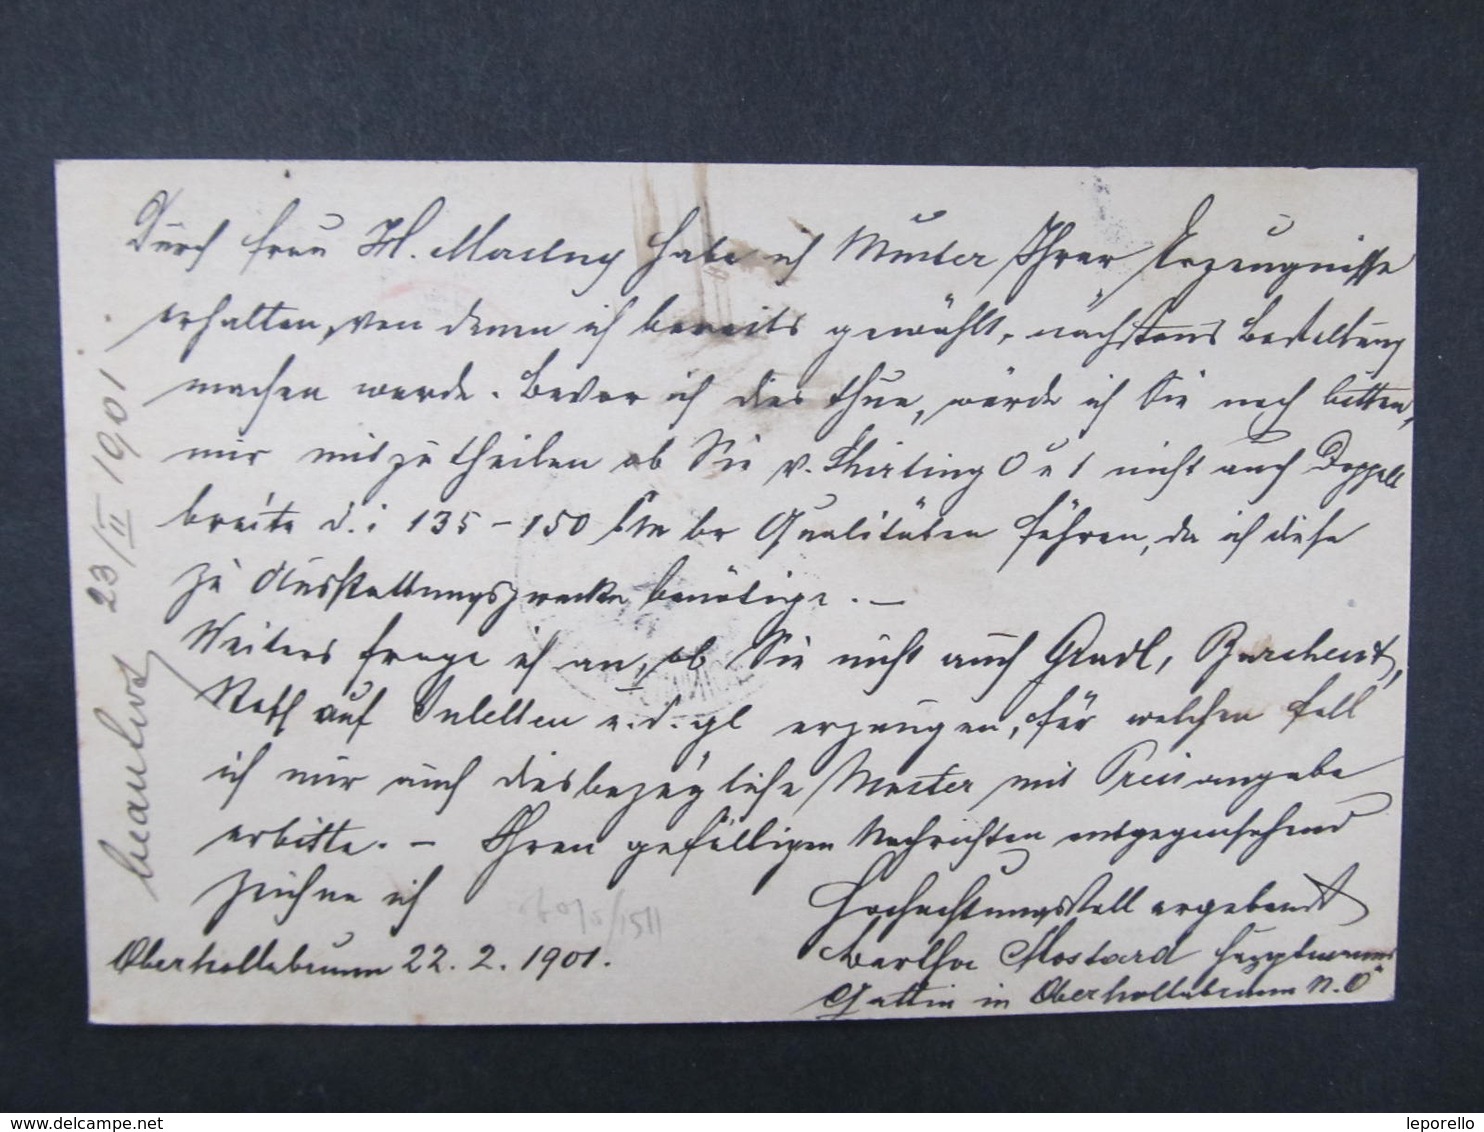 Durch Frau M. Mactny habe ich Muster Ihrer Erzeugnisse
erhalten, von denen ich bereits gewählt, nächstens Bestellung
machen werde. Bevor ich dies thue, würde ich Sie noch bitten,
mir mitzutheilen ob Sie v. Shirting 0 u 1 nicht auch Doppel
breite d. i 135 – 150 Ctm br Qualitäten führen, da ich diese
zu Ausstattungszwecke benötige. –
Weiters frage ich an, ob Sie nicht auch Gradl, Barchent,
auf Inletten u. d. gl erzeugen, für welchen Fall
ich mir auch diesbezügliche Muster mit Preisangabe
erbitte. – Ihren gefälligen Nachrichten entgegensehend
zeichne ich
Hochachtungsvoll ergebenst
Bertha Mostard Hauptmanns
Gattin in Oberhollabrunn N. Ö
Oberhollabrunn 22. 2. 1901.
23/II 1901